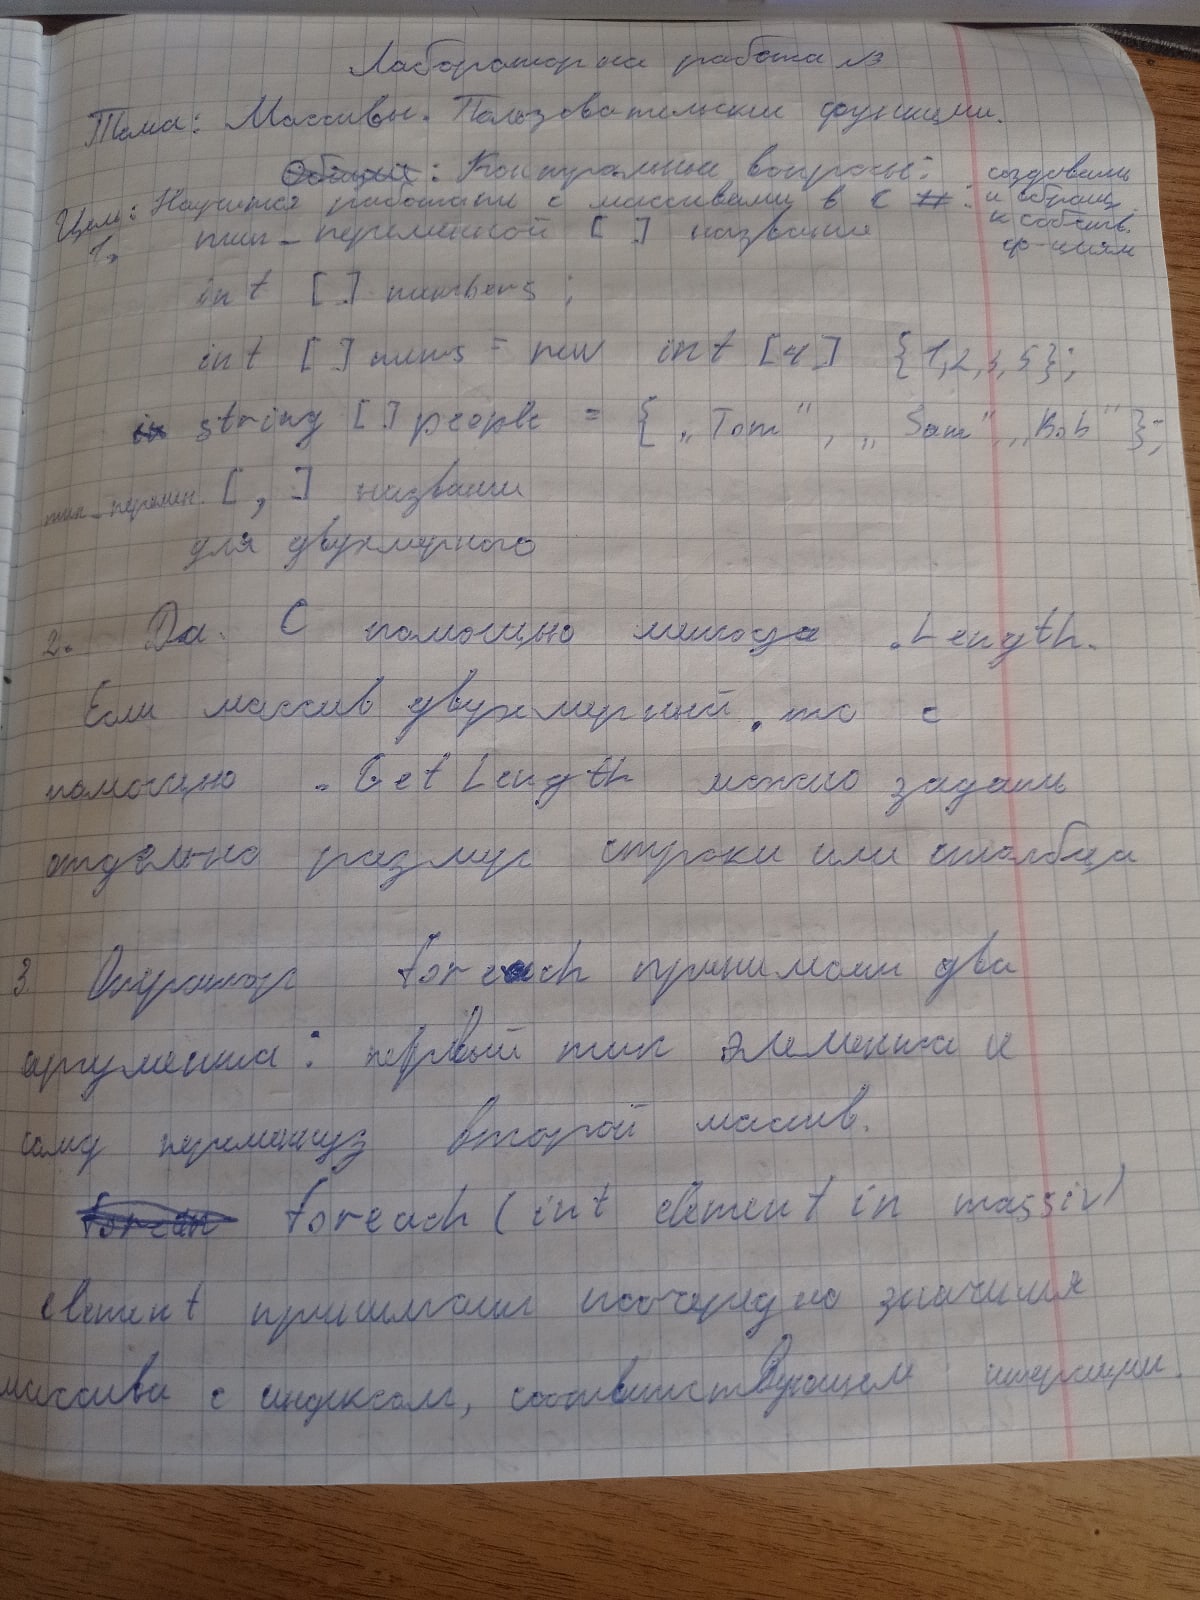 Лабораторна работа №3
Тема: Массивы. Пользовательские функции.
Общие: Контрольные вопросы:
Цель: Научится работать с массивами в C #: создовать и обращ. к собств. ф-циям
1. тип_переменной [ ] название
int [ ] numbers ;
int [ ] nums = new int [4] {1,2,3,5};
in string [ ] people = { „Tom", „Sam", „Bob" };
тип_перемен. [ , ] названи
для двухмерного
2. Да. С помощью метода .Length.
Если массив двухмерный, то с
помощью .GetLength можно задать
отдельно размер строки или столбца
3. Оператор foreach принимает два
аргумента: первый тип элемента и
саму переменную второй массив.
forean foreach (int element in massiv)
element принимает поочередно значиния
массива с индексом, соответствующем итерации.